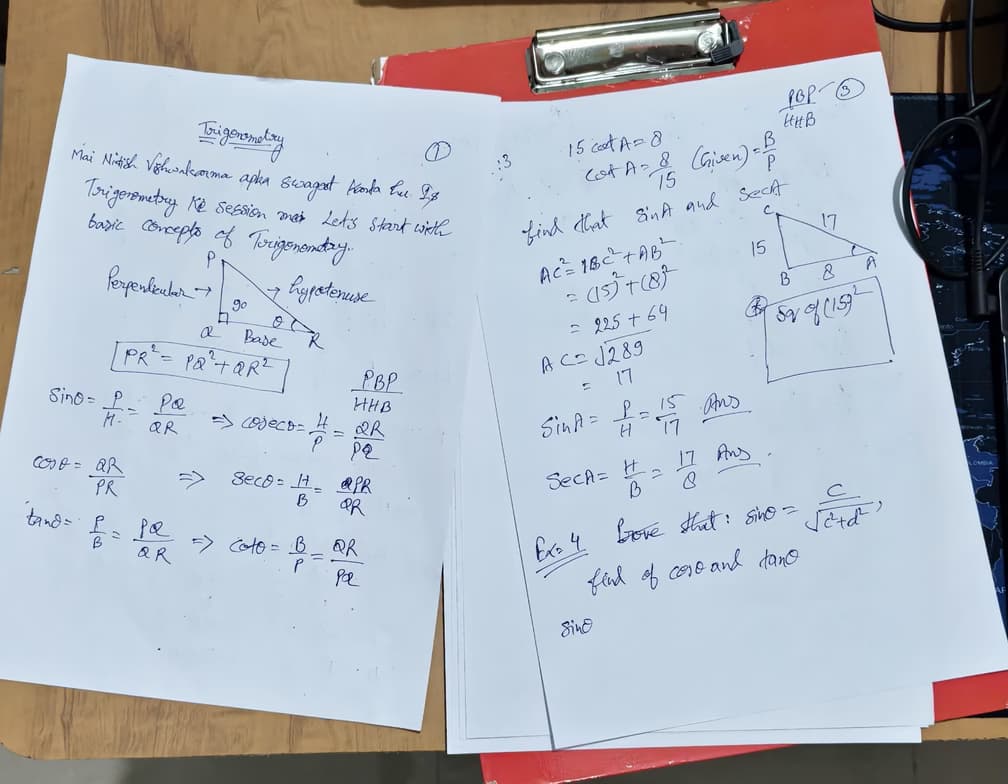 Trigonometry
①
Mai Nitish Vishwakarma apka swagat karta hu. Is
Trigonometry Ke session mai Let's start with
basic concepts of Trigonometry.
P
Perpendicular → → hypotenuse
90 θ
Q Base R
PR² = PQ² + QR²
PBP
HHB
sinθ = P/H = PQ/QR ⇒ cosecθ = H/P = QR/PQ
cosθ = QR/PR ⇒ secθ = H/B = PR/QR
tanθ = P/B = PQ/QR ⇒ cotθ = B/P = QR/PQ
PBP
HHB
③
:3 15 cot A = 8
cot A = 8/15 (Given) = B/P
find that sinA and secA
C 17
15
B 8 A
AC² = BC² + AB²
= (15)² + (8)²
Sq of (15)²
= 225 + 64
AC = √289
= 17
SinA = P/H = 15/17 Ans
SecA = H/B = 17/8 Ans.
Ex=4 Prove that: sinθ = C/√c²+d²,
find of cosθ and tanθ
sinθ